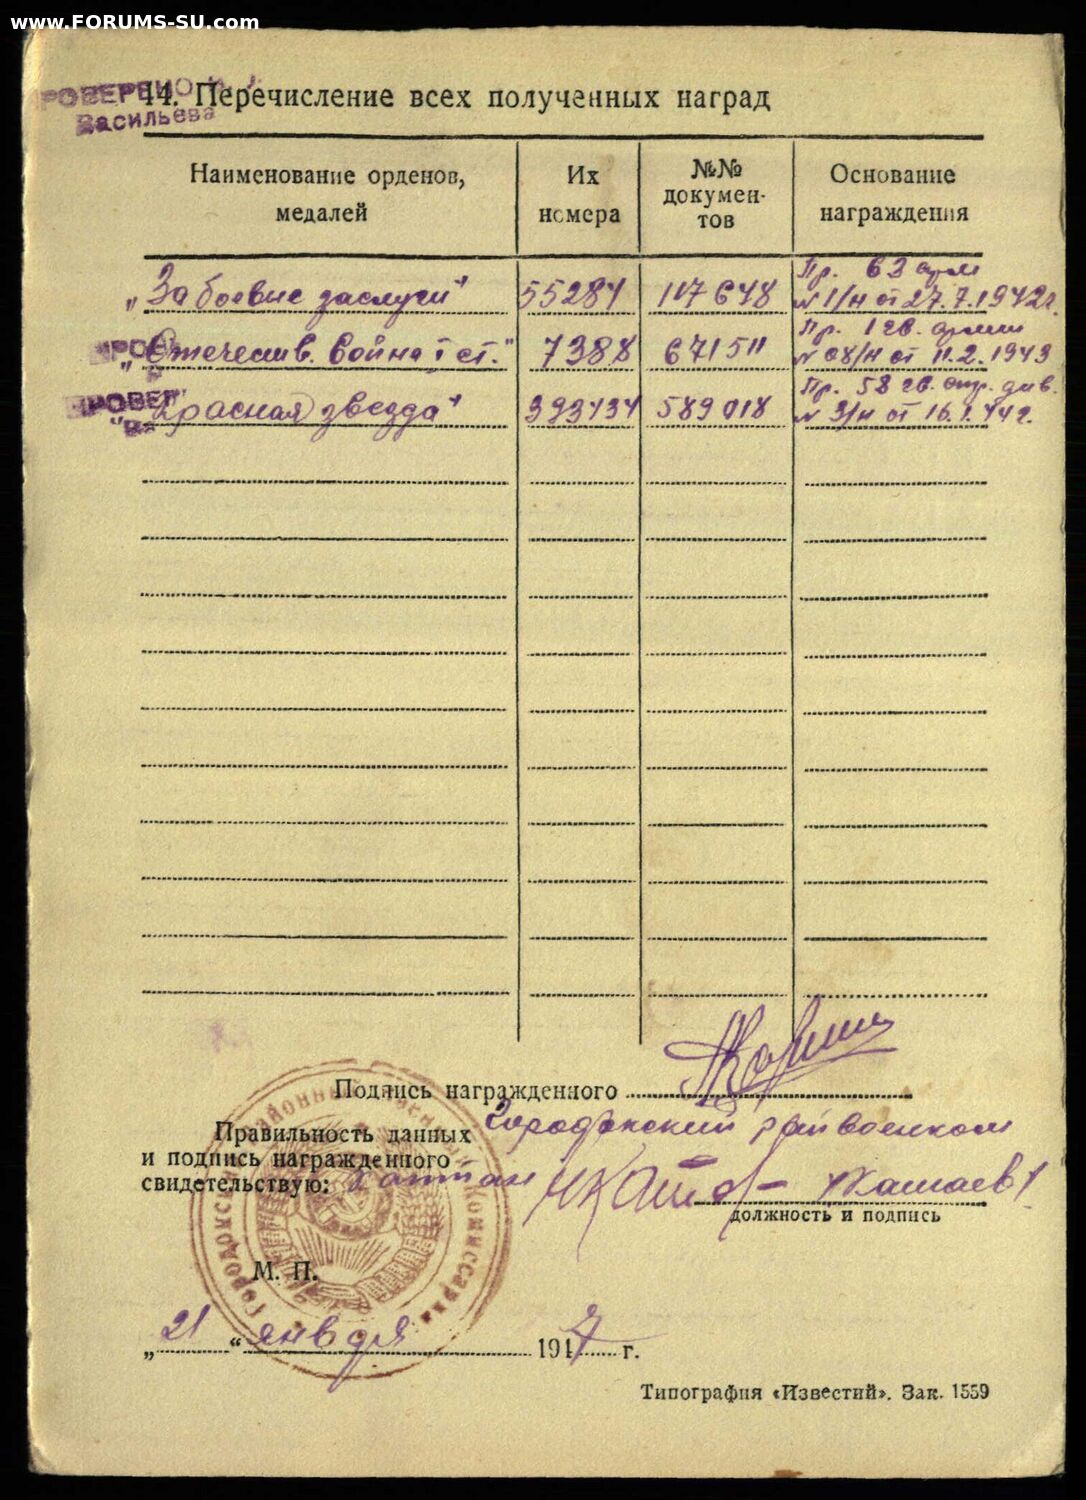 www.FORUMS-SU.com
14. Перечисление всех полученных наград
Васильева
Наименование орденов, медалей
Их номера
№№ докумен-тов
Основание награждения
„За боевые заслуги" 55284 117648 Пр. 63 арм
№ 1/н от 27.7.1942г.
„Отечеств. война I ст." 7388 671511 Пр. 1 гв. армии
№ 08/н от 11.2.1943
"Красная звезда" 393434 589018 Пр. 58 гв. стр. див.
№ 3/н от 16.1.44г.
Подпись награжденного
Правильность данных
и подпись награжденного
свидетельствую:
райвоенком
капитан
должность и подпись
М. П.
„21“ января 1947 г.
Типография «Известий». Зак. 1559